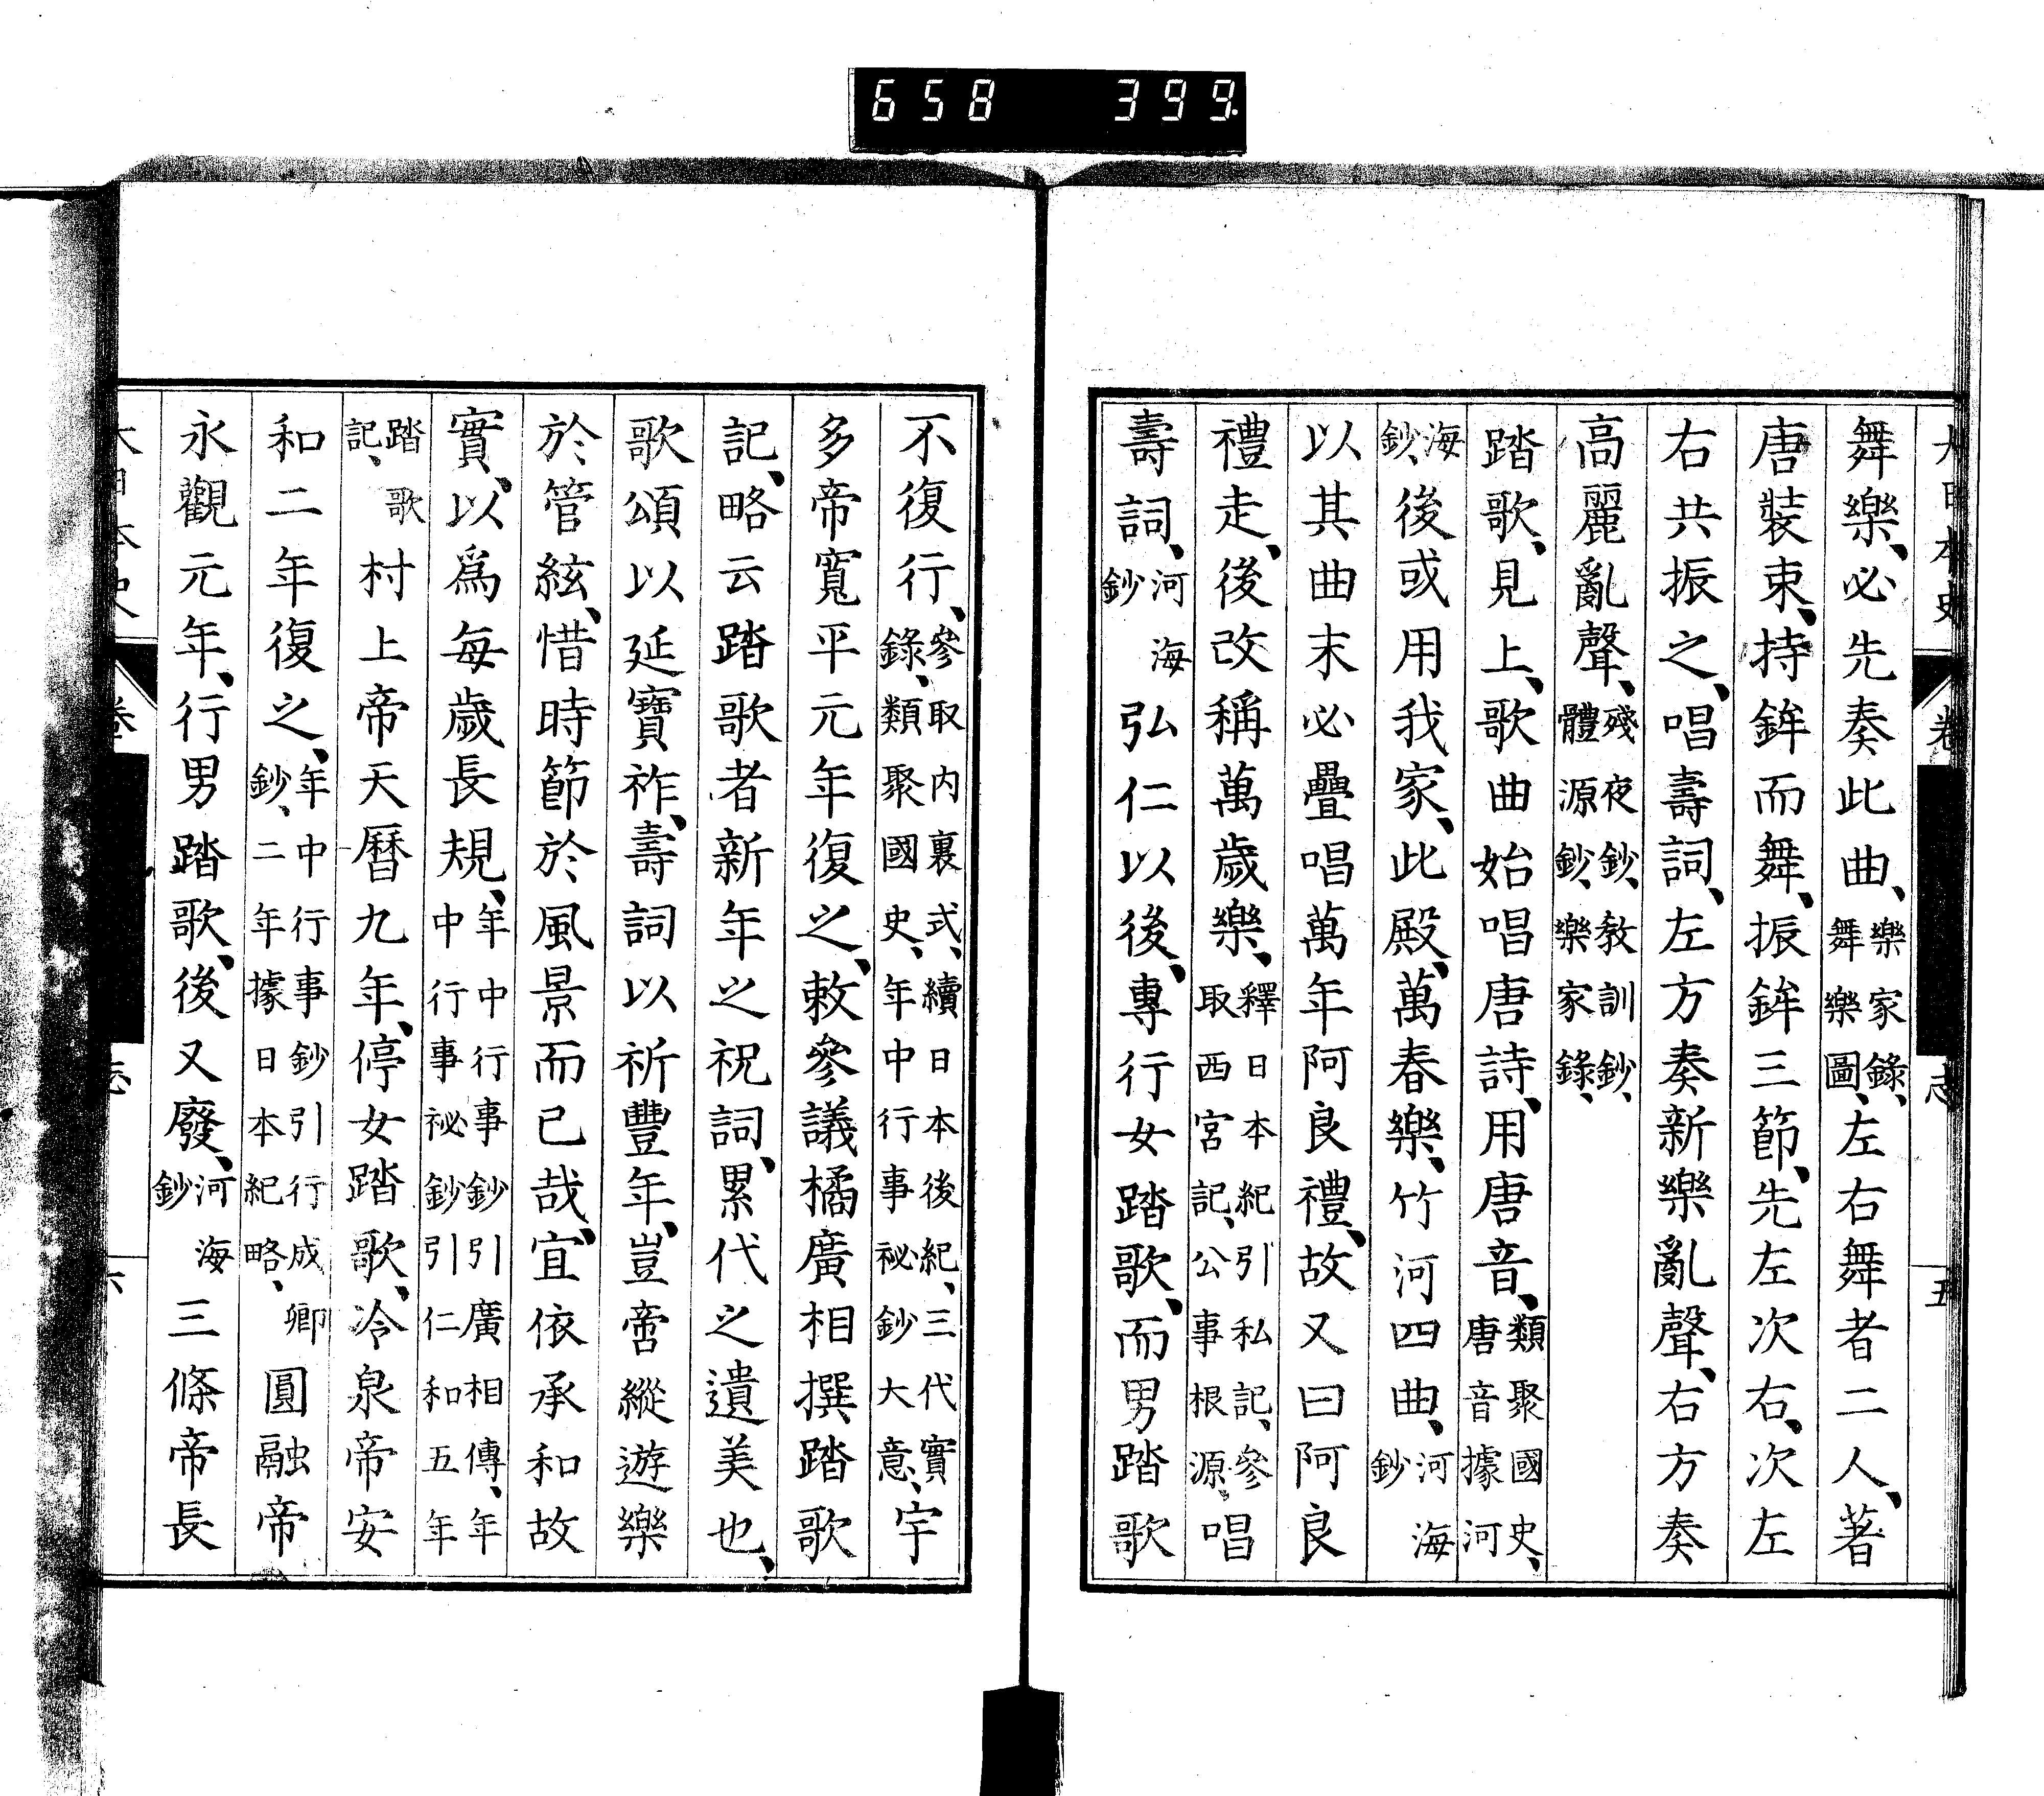 658 399.
大日本史 卷 志 五
舞樂、必先奏此曲、樂家錄、舞樂圖、左右舞者二人、著
唐裝束、持鉾而舞、振鉾三節、先左次右、次左
右共振之、唱壽詞、左方奏新樂亂聲、右方奏
高麗亂聲、殘夜鈔、教訓鈔、體源鈔、樂家錄、
踏歌、見上、歌曲始唱唐詩、用唐音、類聚國史、唐音據河
海鈔、後或用我家、此殿、萬春樂、竹河四曲、河海鈔
以其曲末必疊唱萬年阿良禮、故又曰阿良
禮走、後改稱萬歲樂、釋日本紀引私記、參取西宮記、公事根源、唱
壽詞、河海鈔弘仁以後、專行女踏歌、而男踏歌
不復行、參取內裏式、續日本後紀、三代實錄、類聚國史、年中行事祕鈔大意、宇
多帝寬平元年復之、敕參議橘廣相撰踏歌
記、略云踏歌者新年之祝詞、累代之遺美也、
歌頌以延寶祚、壽詞以祈豐年、豈啻縱遊樂
於管絃、惜時節於風景而已哉、宜依承和故
實、以爲每歲長規、年中行事鈔引廣相傳、年中行事祕鈔引仁和五年
踏歌記、村上帝天曆九年、停女踏歌、冷泉帝安
和二年復之、年中行事鈔引行成卿鈔、二年據日本紀略、圓融帝
永觀元年、行男踏歌、後又廢、河海鈔三條帝長
大日本史 卷 志 六